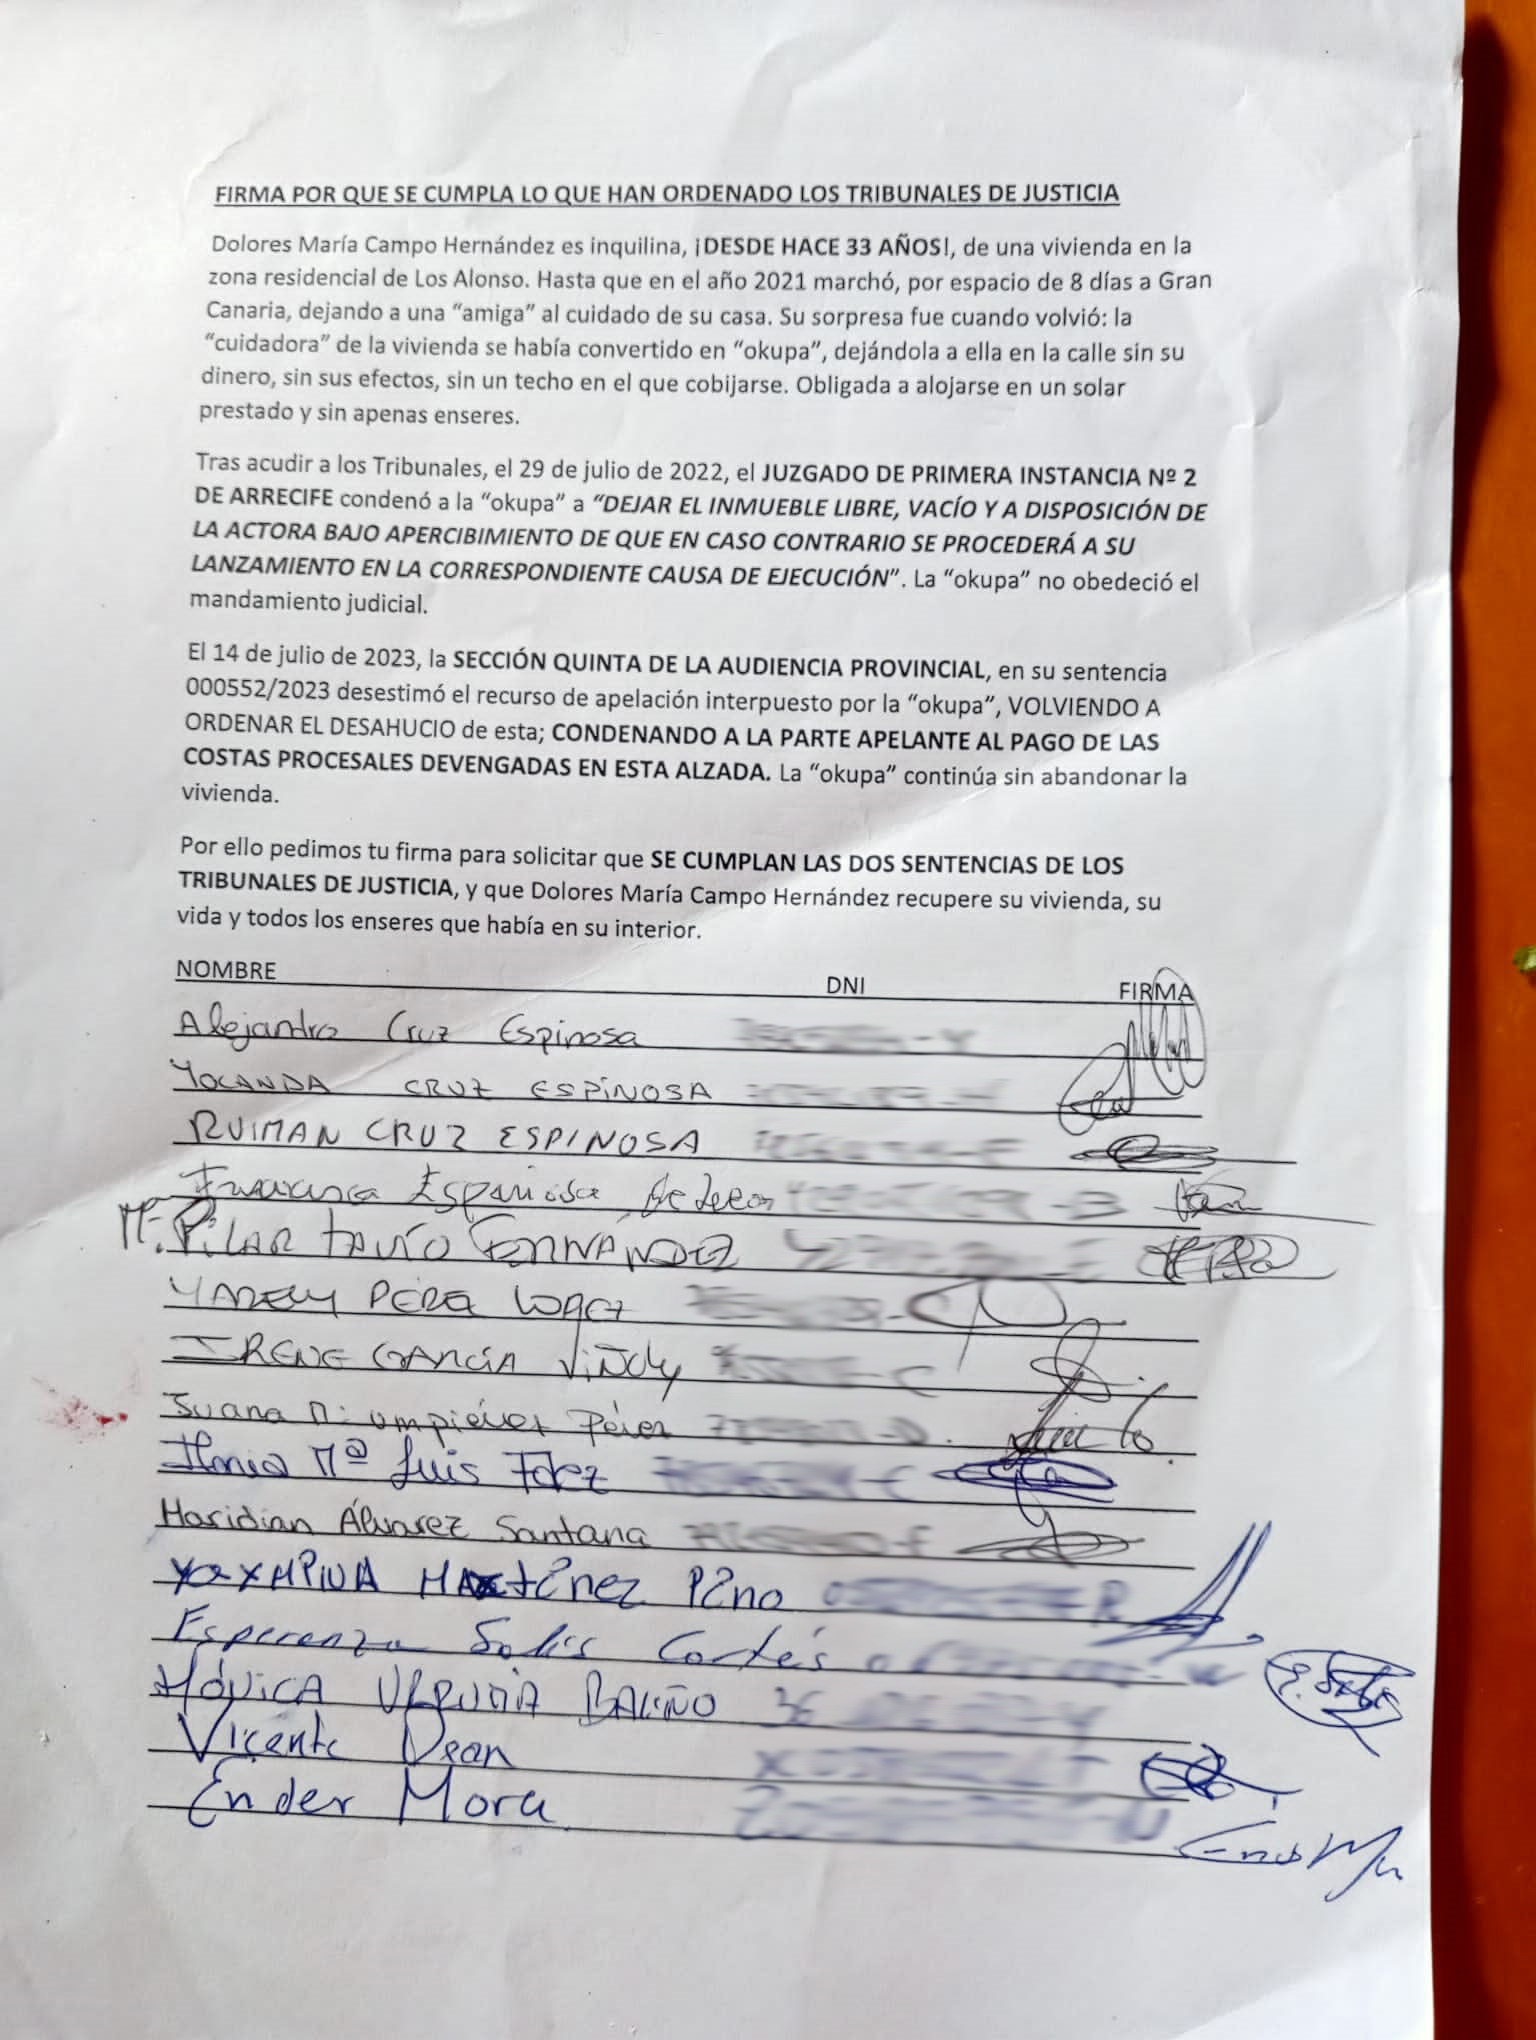 FIRMA POR QUE SE CUMPLA LO QUE HAN ORDENADO LOS TRIBUNALES DE JUSTICIA
Dolores María Campo Hernández es inquilina, ¡DESDE HACE 33 AÑOS!, de una vivienda en la
zona residencial de Los Alonso. Hasta que en el año 2021 marchó, por espacio de 8 días a Gran
Canaria, dejando a una “amiga” al cuidado de su casa. Su sorpresa fue cuando volvió: la
“cuidadora” de la vivienda se había convertido en “okupa”, dejándola a ella en la calle sin su
dinero, sin sus efectos, sin un techo en el que cobijarse. Obligada a alojarse en un solar
prestado y sin apenas enseres.
Tras acudir a los Tribunales, el 29 de julio de 2022, el JUZGADO DE PRIMERA INSTANCIA Nº 2
DE ARRECIFE condenó a la “okupa” a “DEJAR EL INMUEBLE LIBRE, VACÍO Y A DISPOSICIÓN DE
LA ACTORA BAJO APERCIBIMIENTO DE QUE EN CASO CONTRARIO SE PROCEDERÁ A SU
LANZAMIENTO EN LA CORRESPONDIENTE CAUSA DE EJECUCIÓN”. La “okupa” no obedeció el
mandamiento judicial.
El 14 de julio de 2023, la SECCIÓN QUINTA DE LA AUDIENCIA PROVINCIAL, en su sentencia
000552/2023 desestimó el recurso de apelación interpuesto por la “okupa”, VOLVIENDO A
ORDENAR EL DESAHUCIO de esta; CONDENANDO A LA PARTE APELANTE AL PAGO DE LAS
COSTAS PROCESALES DEVENGADAS EN ESTA ALZADA. La “okupa” continúa sin abandonar la
vivienda.
Por ello pedimos tu firma para solicitar que SE CUMPLAN LAS DOS SENTENCIAS DE LOS
TRIBUNALES DE JUSTICIA, y que Dolores María Campo Hernández recupere su vivienda, su
vida y todos los enseres que había en su interior.
NOMBRE DNI FIRMA
Alejandro Cruz Espinosa
YOLANDA CRUZ ESPINOSA
RUIMAN CRUZ ESPINOSA
Francisca Espinosa de Leon
Mª PILAR TAVÍO FERNÁNDEZ
PÉREZ LOPEZ
IRENE GARCÍA Viñoly
Juana Pérez
Mª Luis Fdez
Haridian Álvarez Santana
Esperanza Solís Cortés
MÓNICA
Vicente Dean
Ender Mora